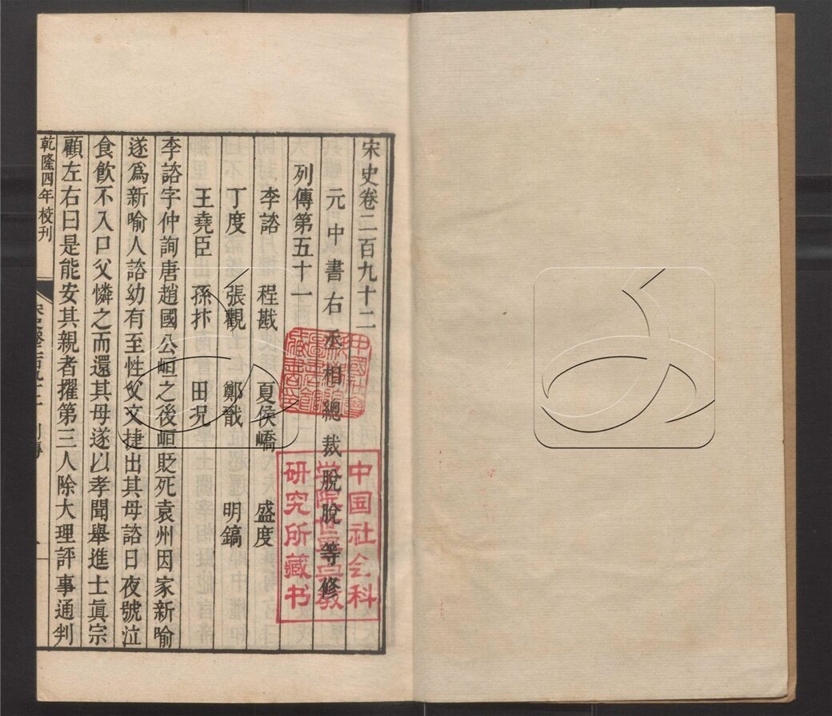 宋史卷二百九十二
元中書右丞相總裁脫脫等修
列傳第五十一
李諮 程戡 夏侯嶠 盛度
丁度 張觀 鄭戩 明鎬
王堯臣 孫抃 田況
李諮字仲詢唐趙國公峘之後峘貶死袁州因家新喻
遂爲新喻人諮幼有至性父文捷出其母諮日夜號泣
食飲不入口父憐之而還其母遂以孝聞舉進士眞宗
顧左右曰是能安其親者擢第三人除大理評事通判
乾隆四年校刊
中国社会科
研究所藏书